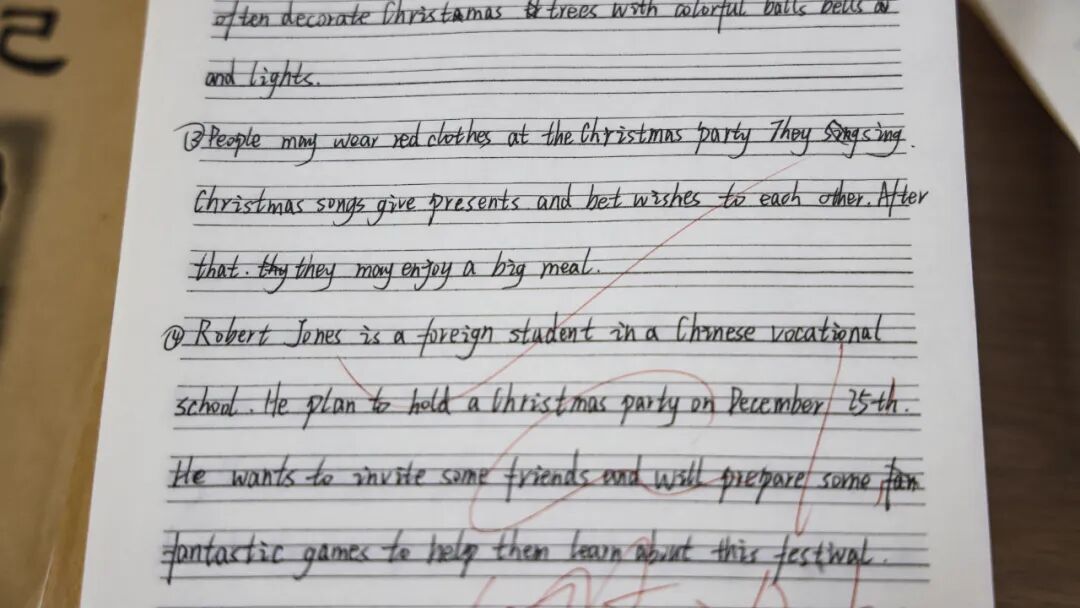 often decorate Christamas trees with colorful balls bells
and lights.
③People may wear red clothes at the Christmas party They sing.
Christmas songs give presents and bet wishes to each other. After
that. they may enjoy a big meal.
④ Robert Jones is a foreign student in a Chinese vocational
school. He plan to hold a Christmas party on December 25th.
He wants to invite some friends and will prepare some
fantastic games to help them learn about this festival.